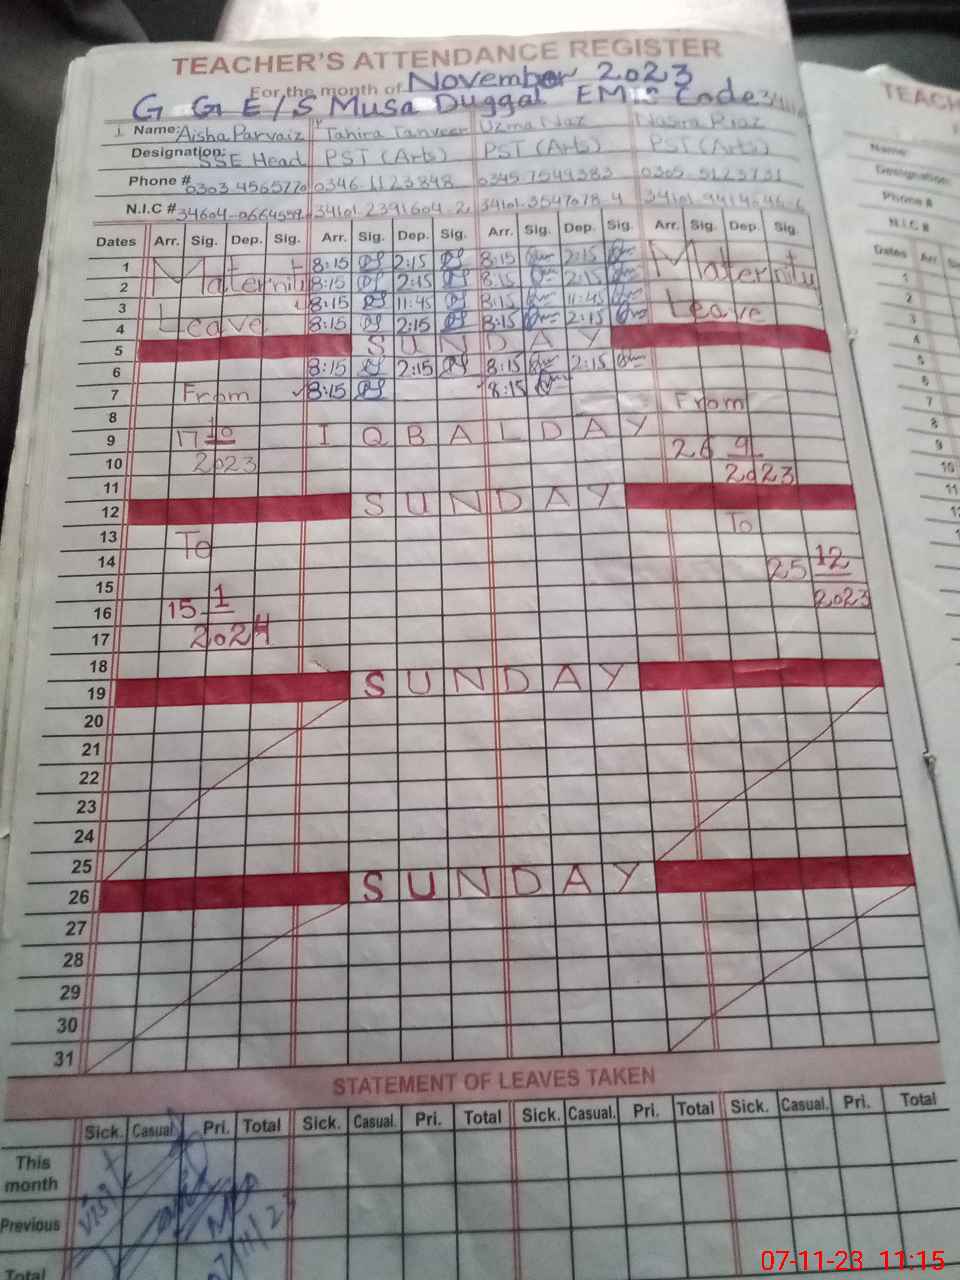 TEACHER'S ATTENDANCE REGISTER
For the month of November 2023
G G E/S Musa Duggal EMIS Code
Name: Aisha Parvaiz Tahira Tanveer Uzma Naz Nasira Riaz
Designation: SSE Head PST (Arts) PST (Arts) PST (Arts)
Phone # 0303 4565770 0346 1123848 0345 7549383 0305 5123731
N.I.C # 34101.2391604-2 34101.3547078-4
Dates Arr. Sig. Dep. Sig. Arr. Sig. Dep. Sig. Arr. Sig. Dep. Sig. Arr. Sig. Dep. Sig.
1 Maternity 8:15 2:15 8:15 2:15 Maternity
2 8:15 2:15 8:15 2:15
3 8:15 11:45 8:15 11:45
4 Leave 8:15 2:15 8:15 2:15 Leave
5 SUNDAY
6 8:15 2:15 8:15 2:15
7 From 8:15 8:15 From
8
9 17 10 IQBAL DAY 26 9
10 2023 2023
11
12 SUNDAY
13 To To
14 25 12
15 2023
16 15 1
17 2024
18
19 SUNDAY
20
21
22
23
24
25
26 SUNDAY
27
28
29
30
31
STATEMENT OF LEAVES TAKEN
Sick. Casual. Pri. Total Sick. Casual. Pri. Total Sick. Casual. Pri. Total Sick. Casual. Pri. Total
This month
Previous
Total
07-11-23 11:15
TEACH
Name:
Designation:
Phone #
N.I.C #
Dates Arr. Si
1
2
3
4
5
6
7
8
9
10
11
12